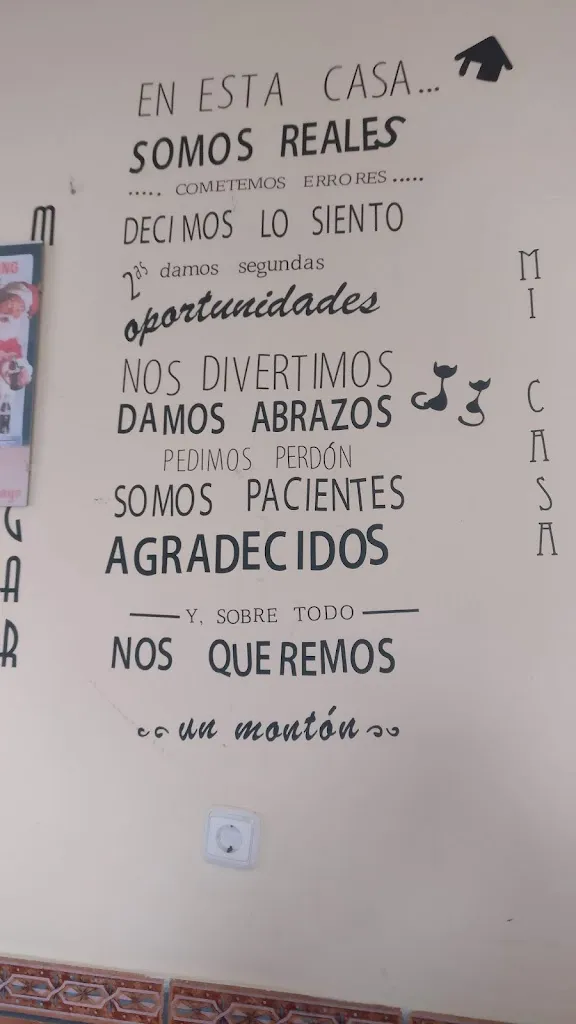 EN ESTA CASA...
SOMOS REALES
..... COMETEMOS ERRORES .....
DECIMOS LO SIENTO
2as damos segundas
oportunidades
NOS DIVERTIMOS
DAMOS ABRAZOS
PEDIMOS PERDÓN
SOMOS PACIENTES
AGRADECIDOS
Y, SOBRE TODO
NOS QUEREMOS
un montón
MI CASA